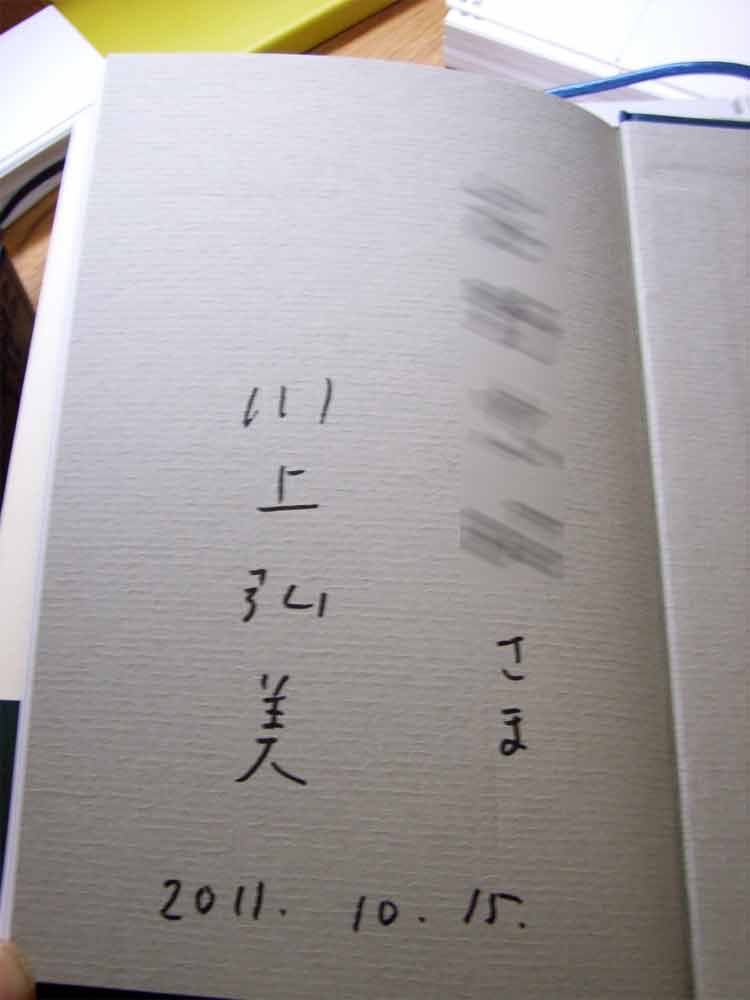 さま
川上弘美
2011. 10. 15.